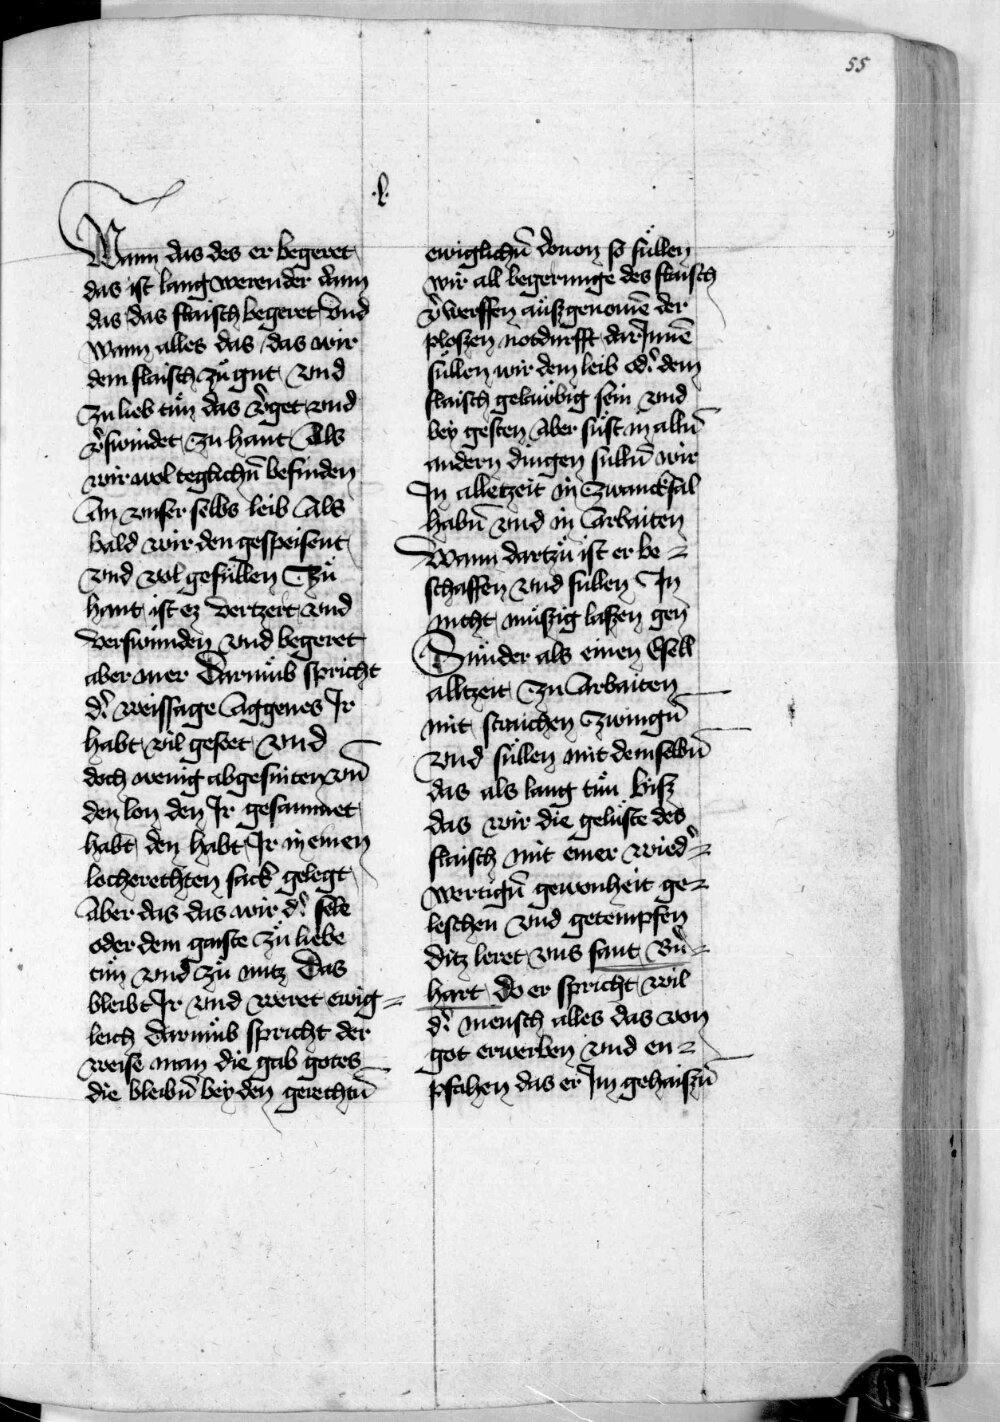 55
.l.
Wann das des er begeret
das ist lang werender dann
das das flaisch begeret vnd
wann alles das das wir
dem flaisch zu gut vnd
zu lieb tun das v̓get vnd
v̓swindet zu hant Als
wir wol teglichn̄ befinden
An vnser selbs leib Als
bald wir den gespeisent
vnd wol gefüllen Tzu
hant ist ez vertzert vnd
verswunden vnd begeret
aber mer Darumb spricht
d̓ weissage Aggeues Ir
habt vil geseet vnd
doch wenig abgesniten vn̄
den lon den Ir gesammet
habt den habt Ir in einen
locherechten sack gelegt
Aber das das wir d̓ sele
oder dem gaiste zu liebe
tun vnd zu nutz Das
bleibt Ir vnd weret ewig=
leich Darumb spricht der
weise man die gab gotes
die bleibn̄ bey den gerechtn̄
ewiglichn̄ douon so süllen
wir all begerunge des flaisch
v̓werffen außgenomē der
ploszen notdurfft dar Innē
süllen wir dem leib od̓ dem
flaisch gelaubig sein vnd
bey gesten Aber süst in alln̄
andern dingen sulln̄ wir
In alletzeit in Zwancksal
habn̄ vnd in Arbaiten
Wann dartzu ist er be=
schaffen vnd sullen In
nicht müßig laszen gen
Sunder als einen Esell
alltzeit Zu Arbaiten
mit straichen Zwingn̄
vnd süllen mit demselbn̄
das als lang tun bisz
das wir die geluste des
flaisch mit einer wied̓=
wertign̄ gewonheit ge=
leschen vnd getempfen
ditz leret vns sant B̓n=
hart Do er spricht wil
d̓ mensch alles das von
got erwerben vnd en=
pfahen das er Im gehaiszn̄